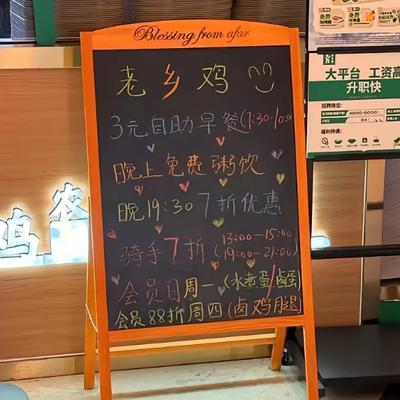 Blessing from afar
老乡鸡
3元自助早餐(7:30-10:00)
晚上免费粥饮
晚19:30 7折优惠
骑手7折(13:00-15:00
19:00-21:00)
会员日周一(水煮蛋/卤蛋)
会员88折周四(卤鸡腿)
大平台 工资高
升职快
招聘岗位:
福利待遇:
鸡